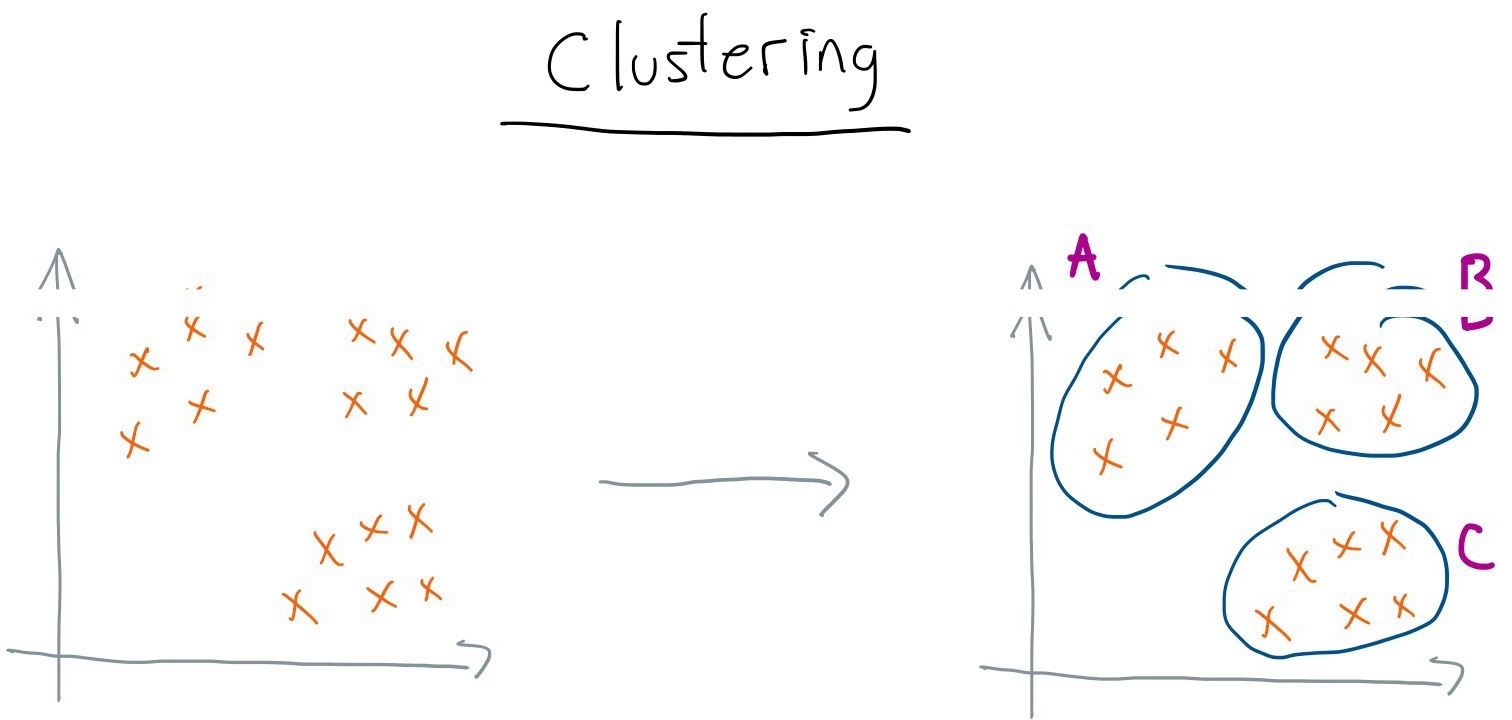 Clustering
A
B
C